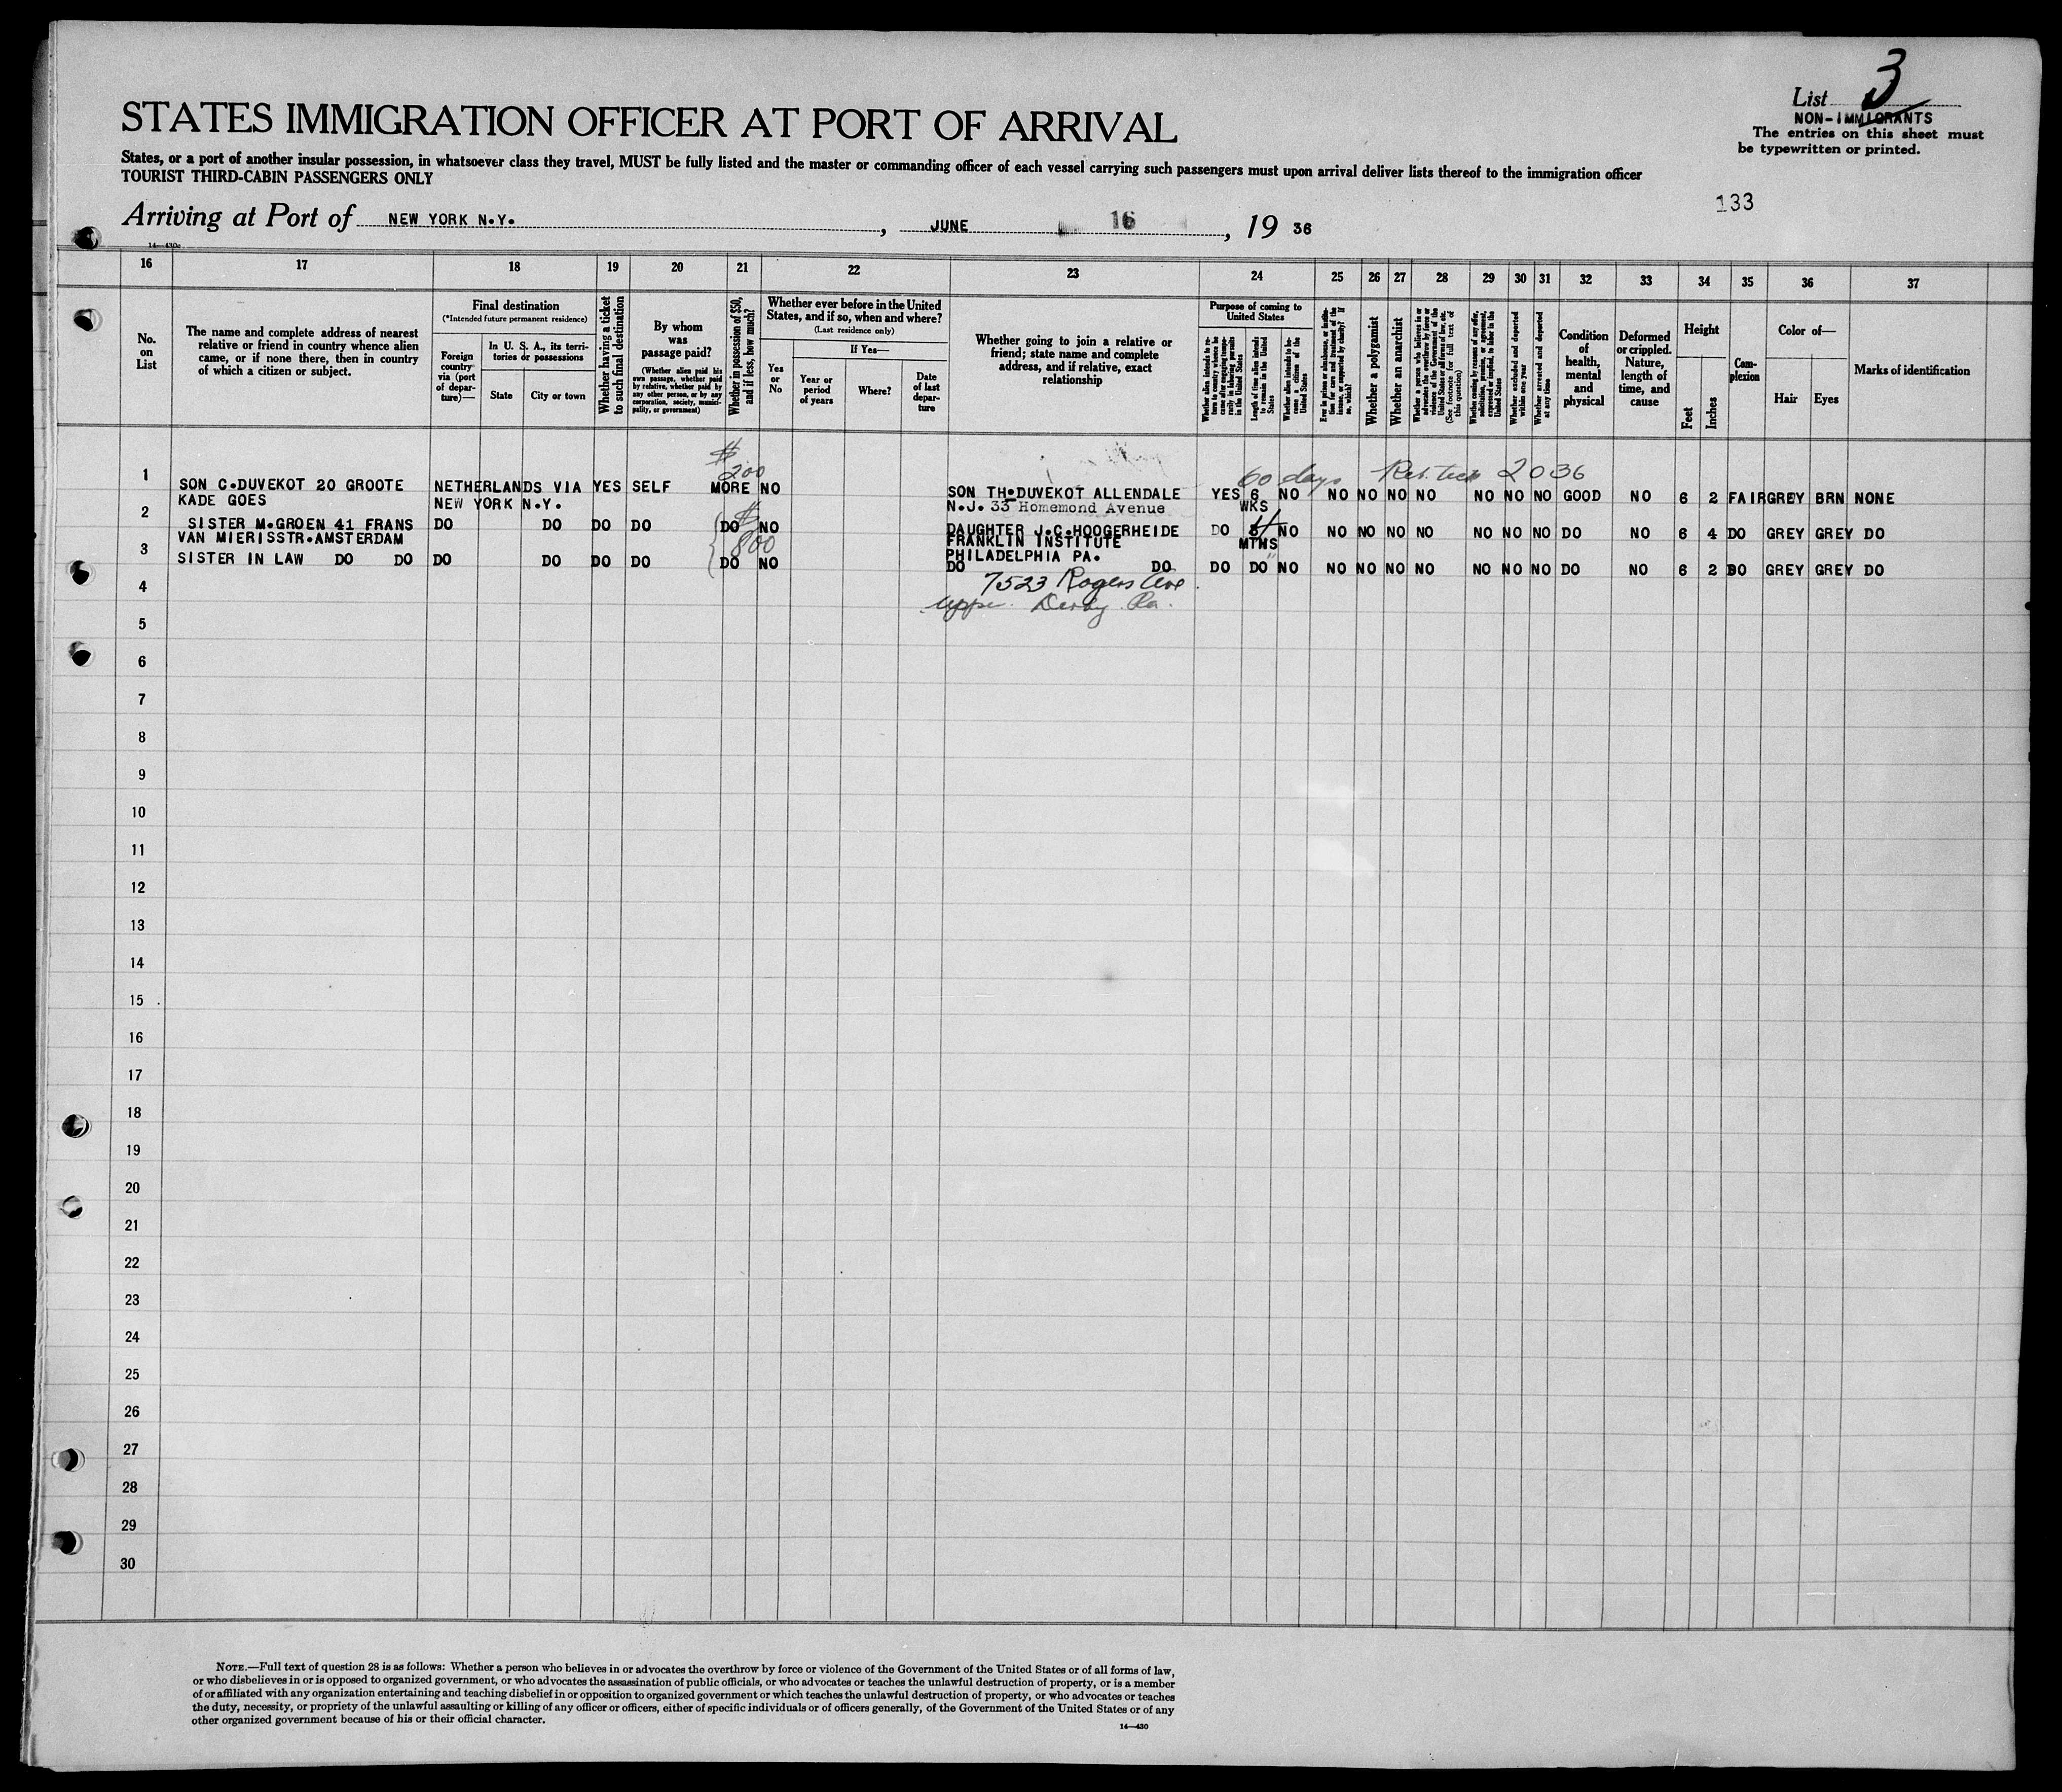 List 3
NON-IMMIGRANTS
The entries on this sheet must
be typewritten or printed.
STATES IMMIGRATION OFFICER AT PORT OF ARRIVAL
States, or a port of another insular possession, in whatsoever class they travel, MUST be fully listed and the master or commanding officer of each vessel carrying such passengers must upon arrival deliver lists thereof to the immigration officer
TOURIST THIRD-CABIN PASSENGERS ONLY
133
Arriving at Port of NEW YORK N.Y. , JUNE 16 , 19 36
14—430c
16 17 18 19 20 21 22 23 24 25 26 27 28 29 30 31 32 33 34 35 36 37
No.
on
List
The name and complete address of nearest
relative or friend in country whence alien
came, or if none there, then in country
of which a citizen or subject.
Final destination
(*Intended future permanent residence)
Foreign
country
via (port
of depar-
ture)—
In U. S. A., its terri-
tories or possessions
State
City or town
Whether having a ticket
to such final destination
By whom
was
passage paid?
(Whether alien paid his
own passage, whether paid
by relative, whether paid by
any other person, or by any
corporation, society, munici-
pality, or government)
Whether in possession of $50,
and if less, how much?
Whether ever before in the United
States, and if so, when and where?
(Last residence only)
Yes
or
No
If Yes—
Year or
period
of years
Where?
Date
of last
depar-
ture
Whether going to join a relative or
friend; state name and complete
address, and if relative, exact
relationship
Purpose of coming to
United States
Whether alien intends to re-
turn to country whence he
came after engaging tempo-
rarily in laboring pursuits
in the United States
Length of time alien intends
to remain in the United
States
Whether alien intends to be-
come a citizen of the
United States
Ever in prison or almshouse, or institu-
tion for care and treatment of the
insane, or supported by charity? If
so, which?
Whether a polygamist
Whether an anarchist
Whether a person who believes in or
advocates the overthrow by force or
violence of the Government of the
United States or all forms of law, etc.
(See footnote for full text of
this question)
Whether coming by reason of any offer,
solicitation, promise, or agreement,
expressed or implied, to labor in the
United States
Whether excluded and deported
within one year
Whether arrested and deported
at any time
Condition
of
health,
mental
and
physical
Deformed
or crippled.
Nature,
length of
time, and
cause
Height
Feet
Inches
Com-
plexion
Color of—
Hair
Eyes
Marks of identification
$
200
60 days Ret. tick 2036
1 SON C.DUVEKOT 20 GROOTE NETHERLANDS VIA YES SELF MORE NO SON TH.DUVEKOT ALLENDALE YES 6 NO NO NO NO NO NO NO NO GOOD NO 6 2 FAIR GREY BRN NONE
KADE GOES NEW YORK N.Y. N.J. 33 Homemond Avenue WKS
2 SISTER M.GROEN 41 FRANS DO DO DO DO DO NO DAUGHTER J.C.HOOGERHEIDE DO NO NO NO NO NO NO NO NO DO NO 6 4 DO GREY GREY DO
VAN MIERISSTR.AMSTERDAM $ 800 FRANKLIN INSTITUTE MTHS
PHILADELPHIA PA.
3 SISTER IN LAW DO DO DO DO DO DO DO NO DO DO DO DO NO NO NO NO NO NO NO NO DO NO 6 2 DO GREY GREY DO
7523 Rogers Ave
4 Upper Derby Pa.
5
6
7
8
9
10
11
12
13
14
15
16
17
18
19
20
21
22
23
24
25
26
27
28
29
30
NOTE.—Full text of question 28 is as follows: Whether a person who believes in or advocates the overthrow by force or violence of the Government of the United States or of all forms of law,
or who disbelieves in or is opposed to organized government, or who advocates the assassination of public officials, or who advocates or teaches the unlawful destruction of property, or is a member
of or affiliated with any organization entertaining and teaching disbelief in or opposition to organized government or which teaches the unlawful destruction of property, or who advocates or teaches
the duty, necessity, or propriety of the unlawful assaulting or killing of any officer or officers, either of specific individuals or of officers generally, of the Government of the United States or of any
other organized government because of his or their official character.
14—430